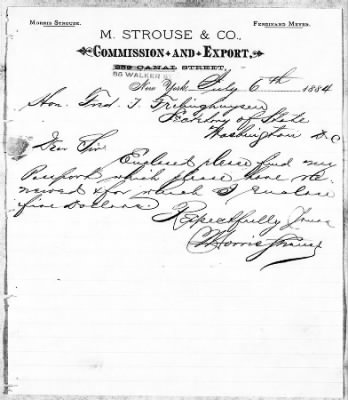 MORRIS STROUSE. FERDINAND MEYER.
M. STROUSE & CO.,
COMMISSION AND EXPORT,
259 CANAL STREET,
86 WALKER ST
New York, July 6th 1884
Hon. Fred. T. Frelinghuysen
Secretary of State
Washington D.C
Dear Sir
Enclosed please find my
Passport which please have re-
newed & for which I enclose
five Dollars.
Respectfully Yours
Morris Strouse